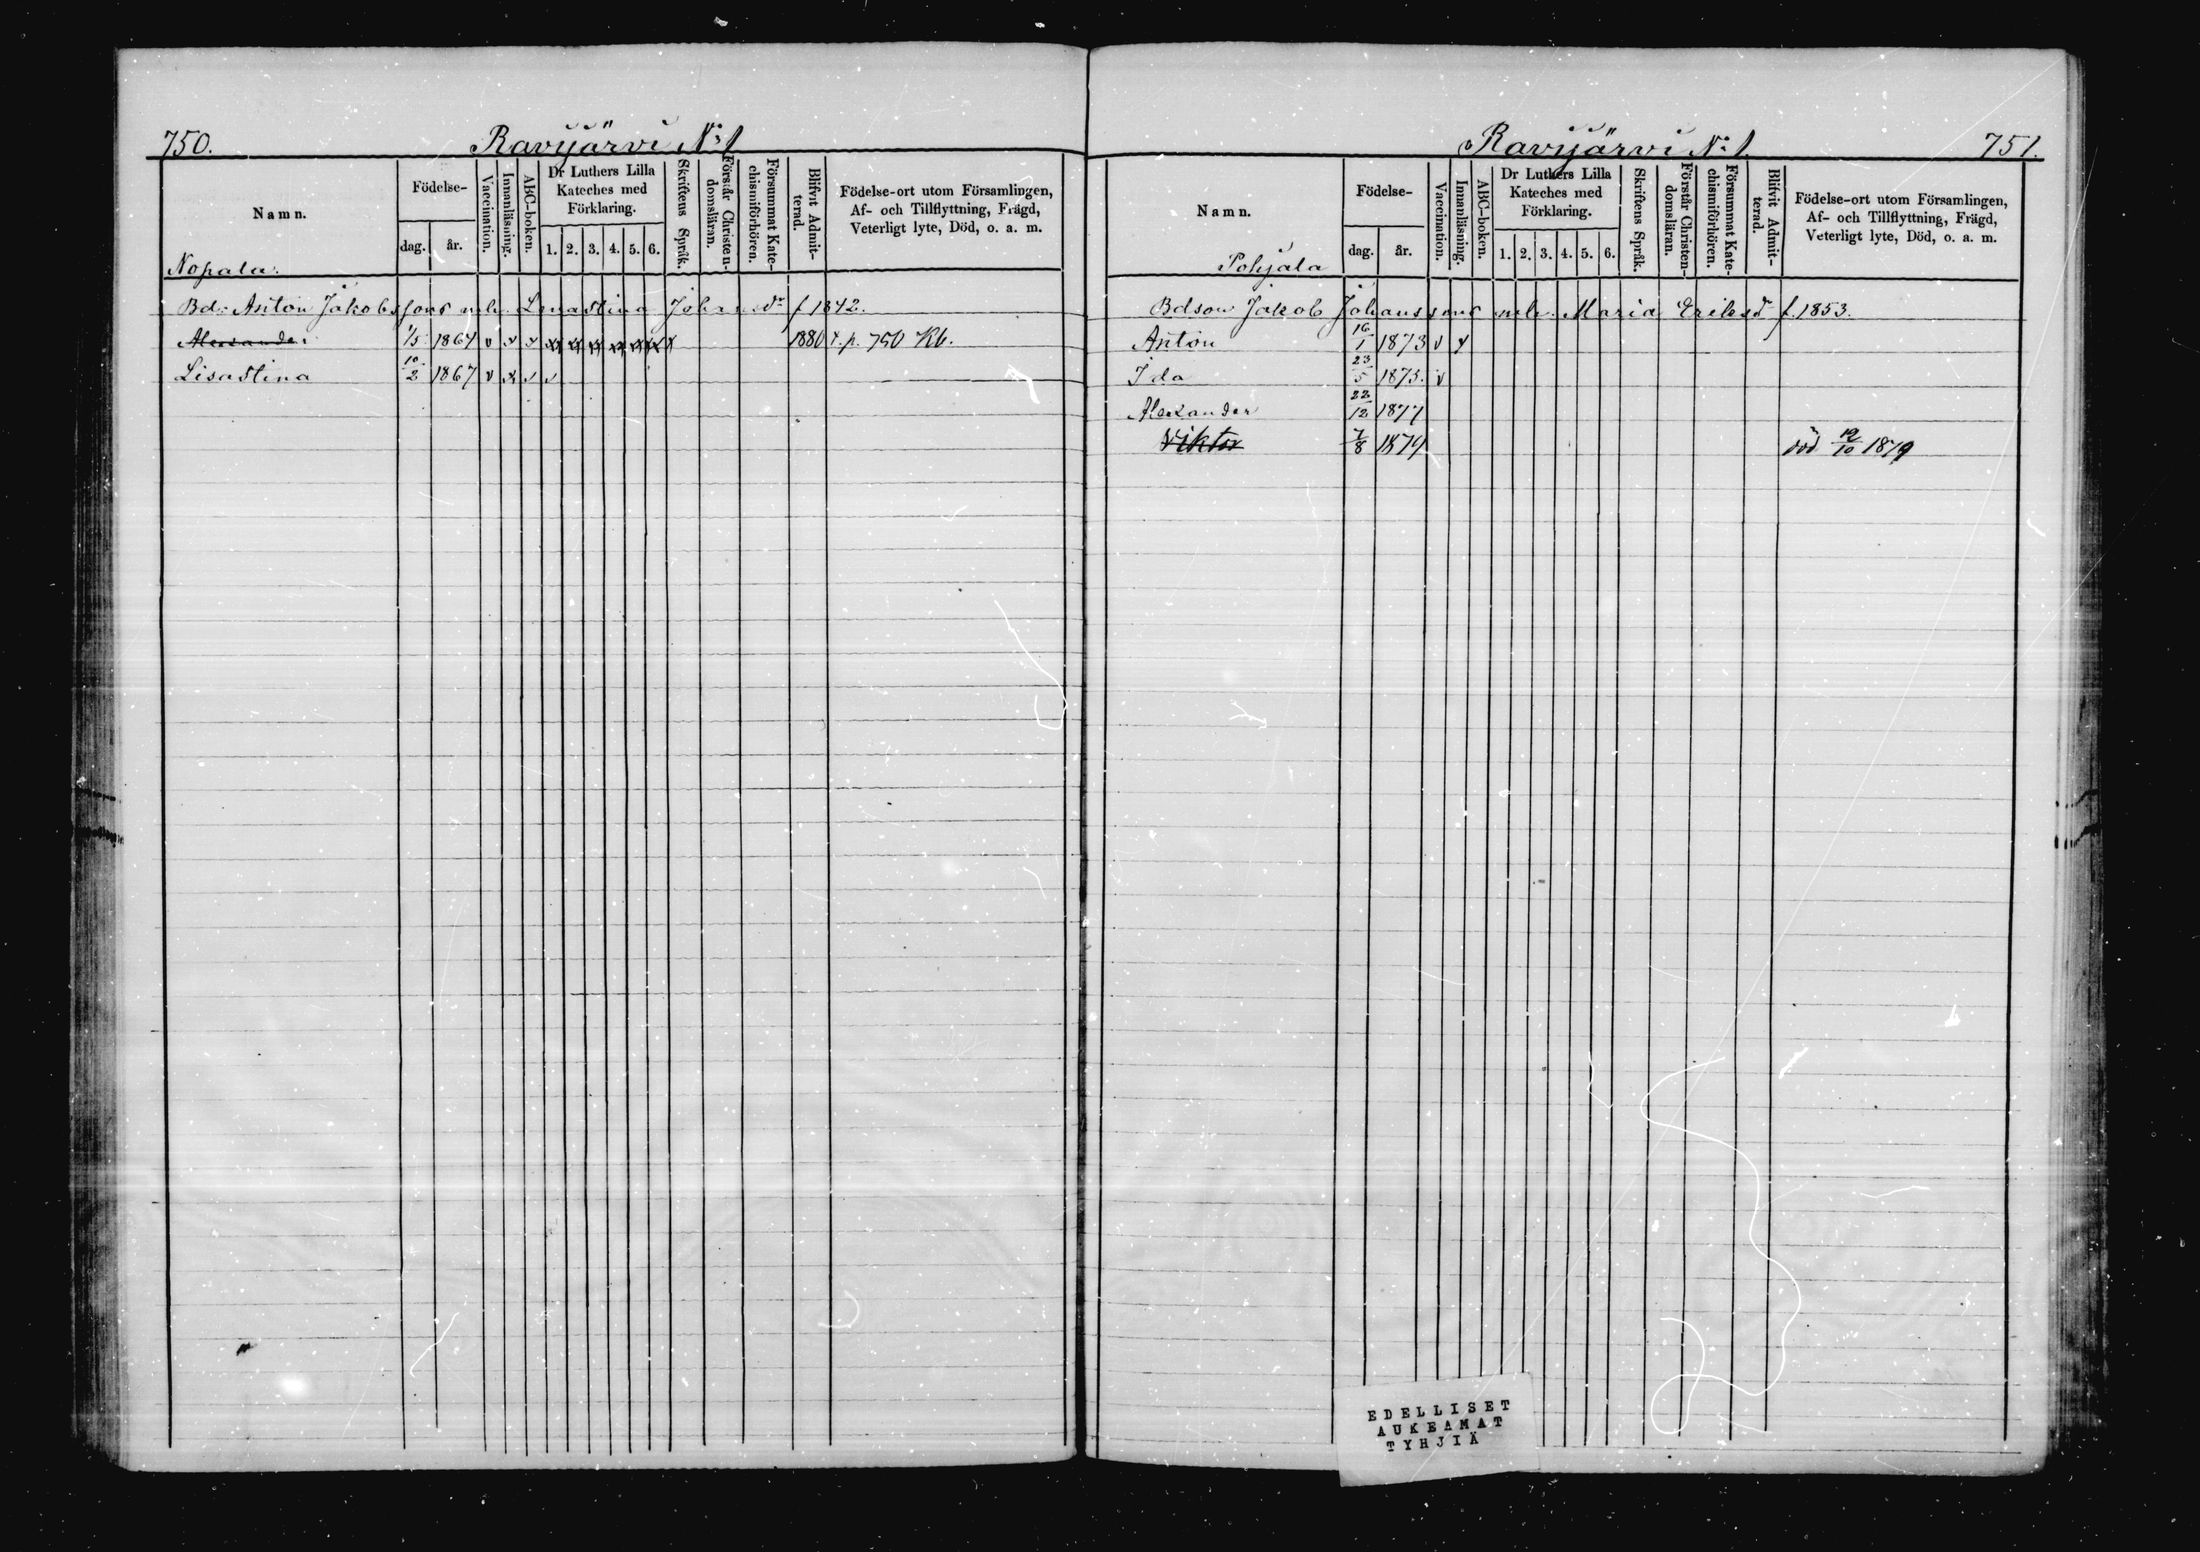 750. Ravijärvi N:1
Namn.
Födelse-
dag. år.
Vaccination.
Innanläsning.
ABC-boken.
Dr Luthers Lilla
Kateches med
Förklaring.
1. 2. 3. 4. 5. 6.
Skriftens Språk.
Förstår Christen-
domsläran.
Försummat Kate-
chismiförhören.
Blifvit Admit-
terad.
Födelse-ort utom Församlingen,
Af- och Tillflyttning, Frägd,
Veterligt lyte, Död, o. a. m.
Nopala.
Bd: Anton Jakobssons m.h. Lenastina Johansdr f. 1842.
Alexander 1/5 1864 v x x x x x x x x x 1880 t. p. 750 Kb.
Lisastina 10/2 1867 v x v v
Ravijärvi N:1. 751.
Namn.
Födelse-
dag. år.
Vaccination.
Innanläsning.
ABC-boken.
Dr Luthers Lilla
Kateches med
Förklaring.
1. 2. 3. 4. 5. 6.
Skriftens Språk.
Förstår Christen-
domsläran.
Försummat Kate-
chismiförhören.
Blifvit Admit-
terad.
Födelse-ort utom Församlingen,
Af- och Tillflyttning, Frägd,
Veterligt lyte, Död, o. a. m.
Pohjala
Bdson Jakob Johanssons m.h. Maria Eriksd f. 1853.
Anton 16/1 1873 v x
Ida 23/5 1875. v
Alexander 22/12 1877
Viktor 7/8 1879 död 12/10 1879
EDELLISET
AUKEAMAT
TYHJIÄ